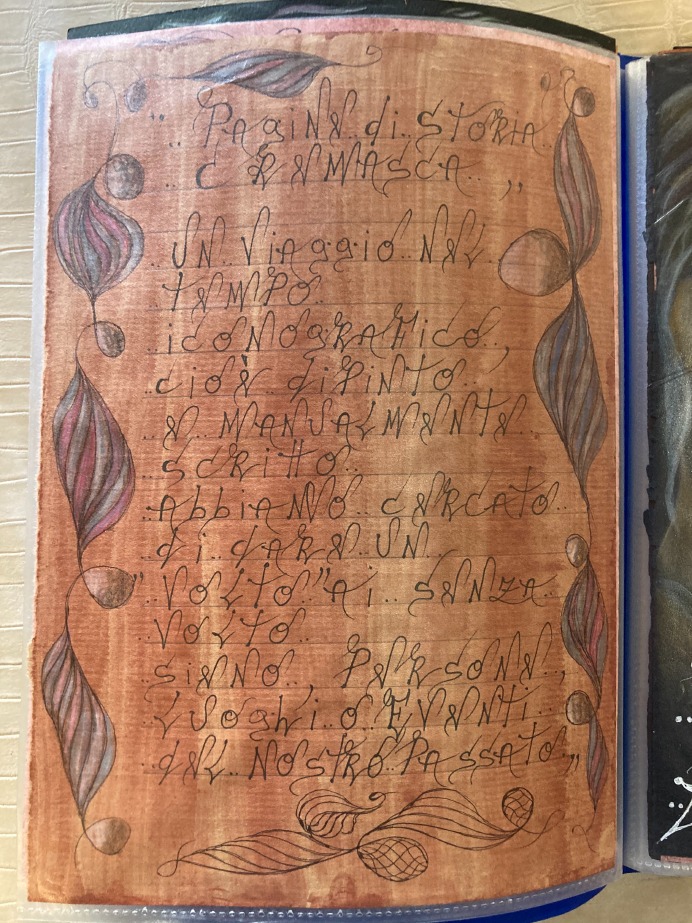 "..PAgiNE..di..STORIA..
..CREMASCA..,,
..UN..ViAggiO..NEL..
..TEMPO..
..iCONOgRAFiCO..,
..CiOÈ..diPiNTO..
..E..MANUALMENTE..
..SCRiTTO..
..AbbiAMO..CERCATO..
..di..dARE..UN..
.."VOLTO"Ai..SENZA..
..VOLTO..
..SiANO..,PERSONE..,
..LUOghi..O..EVENTi..
..dEL..NOSTRO..PASSATO..,,